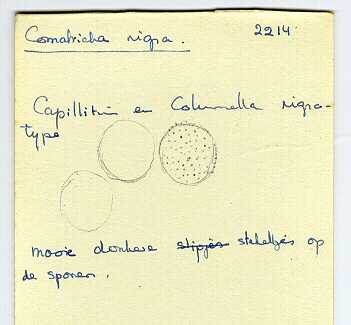 Comatricha nigra. 2214
Capillitium en Columella nigra-
type
mooie donkere ~~stipjes~~ stekeltjes op
de sporen.